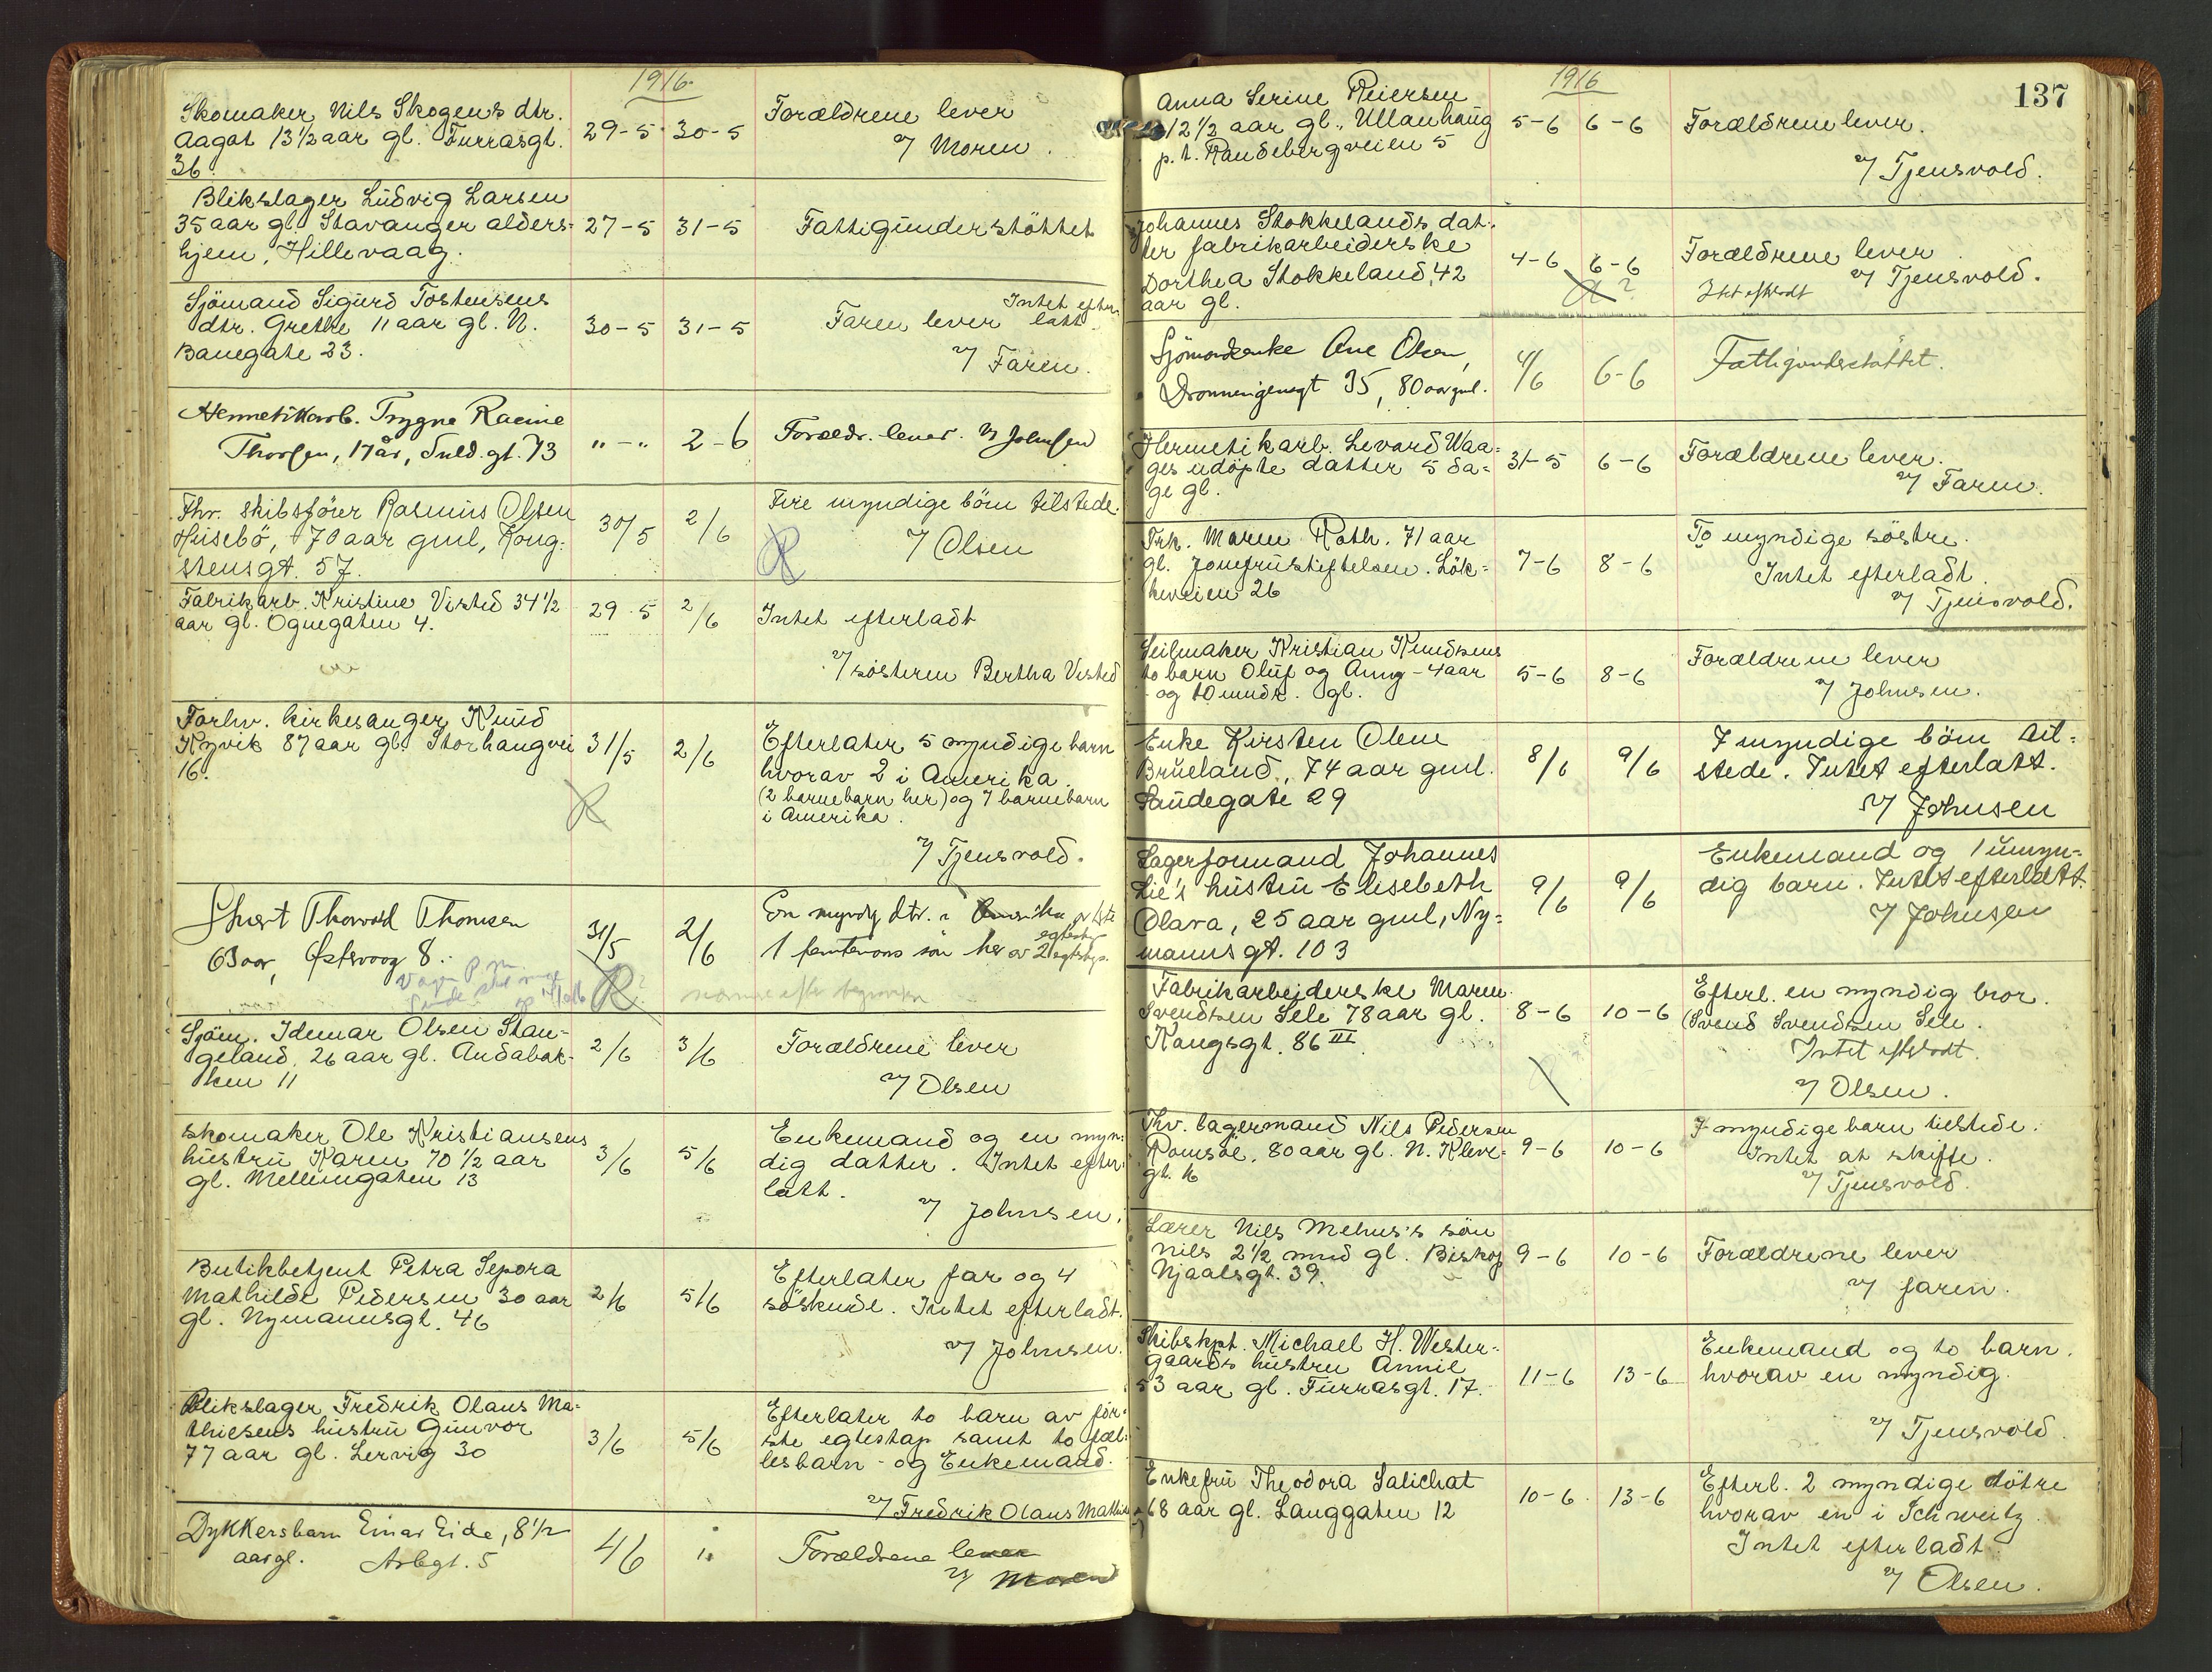 1916
Skomaker Nils Skogens dtr. 29-5 30-5 Forældrene lever
Aagot 13½ aar gl. Furrasgt. v/ Moren.
36
Blikslager Ludvig Larsen
35 aar gl. Stavanger alders- 27-5 31-5 Fattigunderstöttet
hjem, Hillevaag.
Sjömand Sigurd Tostensens Intet efter-
dtr. Grethe 11 aar gl. N. 30-5 31-5 Faren lever latt.
Banegate 23. v/ Faren.
Hermetikarb. Trygve Racine
Thorsen, 17 år, Suld.gt. 73 " - " 2-6 Forældr. lever. v/ Johnsen
Fhv. skibsförer Rasmus Olsen Fire myndige börn tilstede.
Husebö, 70 aar gml, Kong- 30/5 2/6 v/ Olsen
stensgt. 57. R
Fabrikarb. Kristine Visted 34½ 29-5 2/6 Intet efterladt
aar gl. Ognegaten 4.
v/ søsteren Bertha Visted
Forhv. kirkesanger Knud
Kyvik 87 aar gl. Storhaugvei 31/5 2/6 Efterlater 5 myndige barn
16. hvorav 2 i Amerika.
R (2 barnebarn her) og 7 barnebarn
i Amerika.
v/ Tjensvold.
Thorvald Thomsen 31/5 2/6 En myndg dtr. i Amerika
63 aar, Østervaag 8. 1 sön her av 2 egtskp.
R
Sjöm. Idemar Olsen Stan-
geland, 26 aar gl. Andabak- 2/6 3/6 Forældrene lever
ken 11 v/ Olsen
Skomaker Ole Kristiansens Enkemand og en myn-
hustru Karen 70½ aar 3/6 5/6 dig datter. Intet efter-
gl. Mellemgaten 13 latt.
v/ Johnsen.
Butikbetjent Petra Sepora Efterlater far og 4
Mathilde Pedersen 30 aar 2/6 5/6 söskende. Intet efterladt.
gl. Nymannsgt. 46
v/ Johnsen.
Blikslager Fredrik Olaus Ma- Efterlater to barn av för-
thiesens hustru Gunvor 3/6 5/6 ste egteskap samt to fæl-
77 aar gl. Lervig 30 lesbarn - og Enkemand.
v/ Fredrik Olaus Mathies
Dykkersbarn Einar Eide, 8½ 4/6 Forældrene lever
aar gl. Arbgt. 5 v/ Moren
1916 137
Anna Serine Reiersen
12½ aar gl., Ullanhaug 5-6 6-6 Forældrene lever.
p.t. Randebergveien 5
v/ Tjensvold.
Johannes Stokkelands dat-
ter fabrikarbeiderske 4-6 6-6 Forældrene lever
Dorthea Stokkeland, 42 v/ Tjensvold.
aar gl. R? Intet efterladt
Sjömandsenke Ane Olsen, 4/6 6-6 Fattigunderstöttet.
Dronningensgt 35, 80 aar gml.
Hermetikarb. Levard Waa- 31-5 6-6 Forældrene lever.
ges udöpte datter 5 da- v/ Faren.
ge gl.
Frk. Maren Roth. 71 aar To myndige söstre.
gl. Jomfrustiftelsen. Lök- 7-6 8-6 Intet efterladt.
keveien 26 v/ Tjensvold.
Seilmaker Kristian Knudsens Forældrene lever
to barn Oluf og Anny - 4 aar 5-6 8-6 v/ Johnsen.
- og 10 mndr. gl.
Enke Kirsten Olene 7 myndige börn til-
Brueland, 74 aar gml. 8/6 9/6 stede. Intet efterlatt.
Sandegate 29 v/ Johnsen
Lagerformand Johannes Enkemand og 1 umyn-
Lie's hustru Elisebeth 9/6 9/6 dig barn. Intet efterlatt.
Olava, 25 aar gml, Ny- v/ Johnsen
mannsgt. 103
Fabrikarbeiderske Maren Efterl. en myndig bror.
Svendsen Sele 78 aar gl. 8-6 10-6 (Svend Svendsen Sele.
Kongsgt. 86 III Intet efterladt.
v/ Olsen.
Fhv. lagermand Nils Pedersen 7 myndige barn tilstede.
Romsöe, 80 aar gl. N. Klev- 9-6 10-6 Intet at skifte.
gt. 16 v/ Tjensvold.
Lærer Nils Mehus's sön
Nils 2½ mnd gl. Biskop 9-6 10-6 Forældrene lever
Njaalsgt. 39. v/ faren.
Skibskpt. Michael H. Wester- Enkemand og to barn.
gaards hustru Annie 11-6 13-6 hvorav en myndig.
53 aar gl. Furrasgt. 17.
v/ Tjensvold.
Enkefru Theodora Salichat 10-6 13-6 Efterl. 2 myndige dötre
68 aar gl. Langgaten 12 hvorav en i Schweitz.
Intet efterladt.
v/ Olsen.